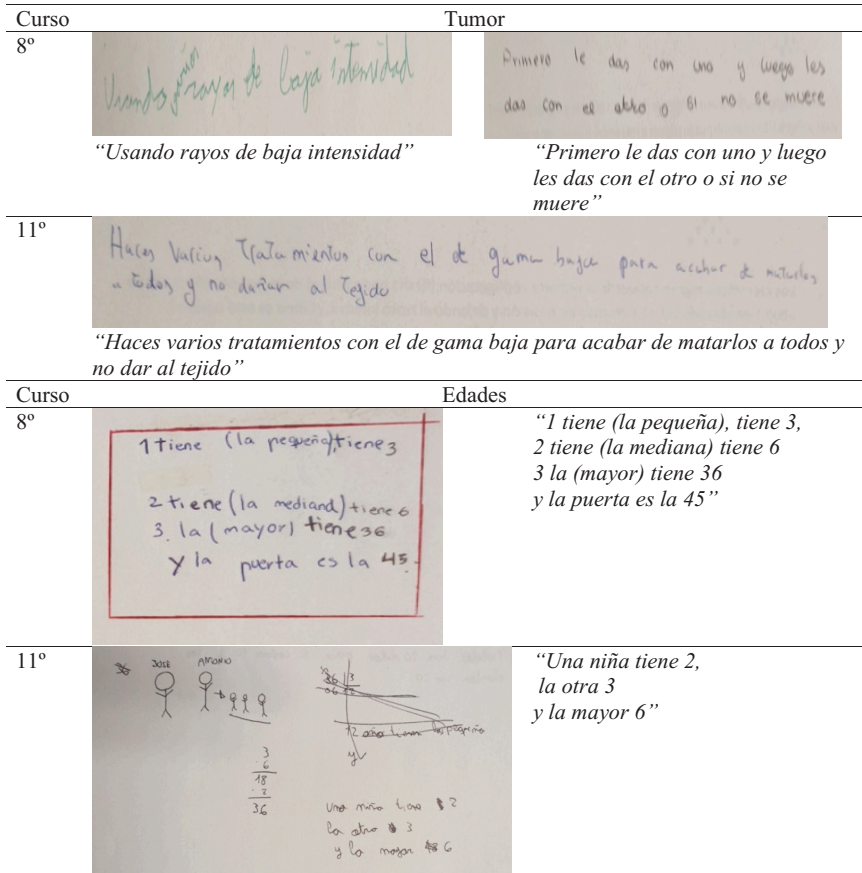 Curso Tumor
8º
Usando varios rayos de baja intensidad
Primero le das con uno y luego les
das con el otro o si no se muere
“Usando rayos de baja intensidad”
“Primero le das con uno y luego
les das con el otro o si no se
muere”
11º
Haces varios tratamientos con el de gama baja para acabar de matarlos
a todos y no dañar al tejido
“Haces varios tratamientos con el de gama baja para acabar de matarlos a todos y
no dar al tejido”
Curso Edades
8º
1 tiene (la pequeña), tiene 3
2 tiene (la mediana) tiene 6
3. la (mayor) tiene 36
y la puerta es la 45.
“1 tiene (la pequeña), tiene 3,
2 tiene (la mediana) tiene 6
3 la (mayor) tiene 36
y la puerta es la 45”
11º
36 JOSE ANTONIO
36 3
06 12
12 años tienen
y
3
· 6
18
· 2
36
una niña tiene 2
la otra 3
y la mayor 6
“Una niña tiene 2,
la otra 3
y la mayor 6”